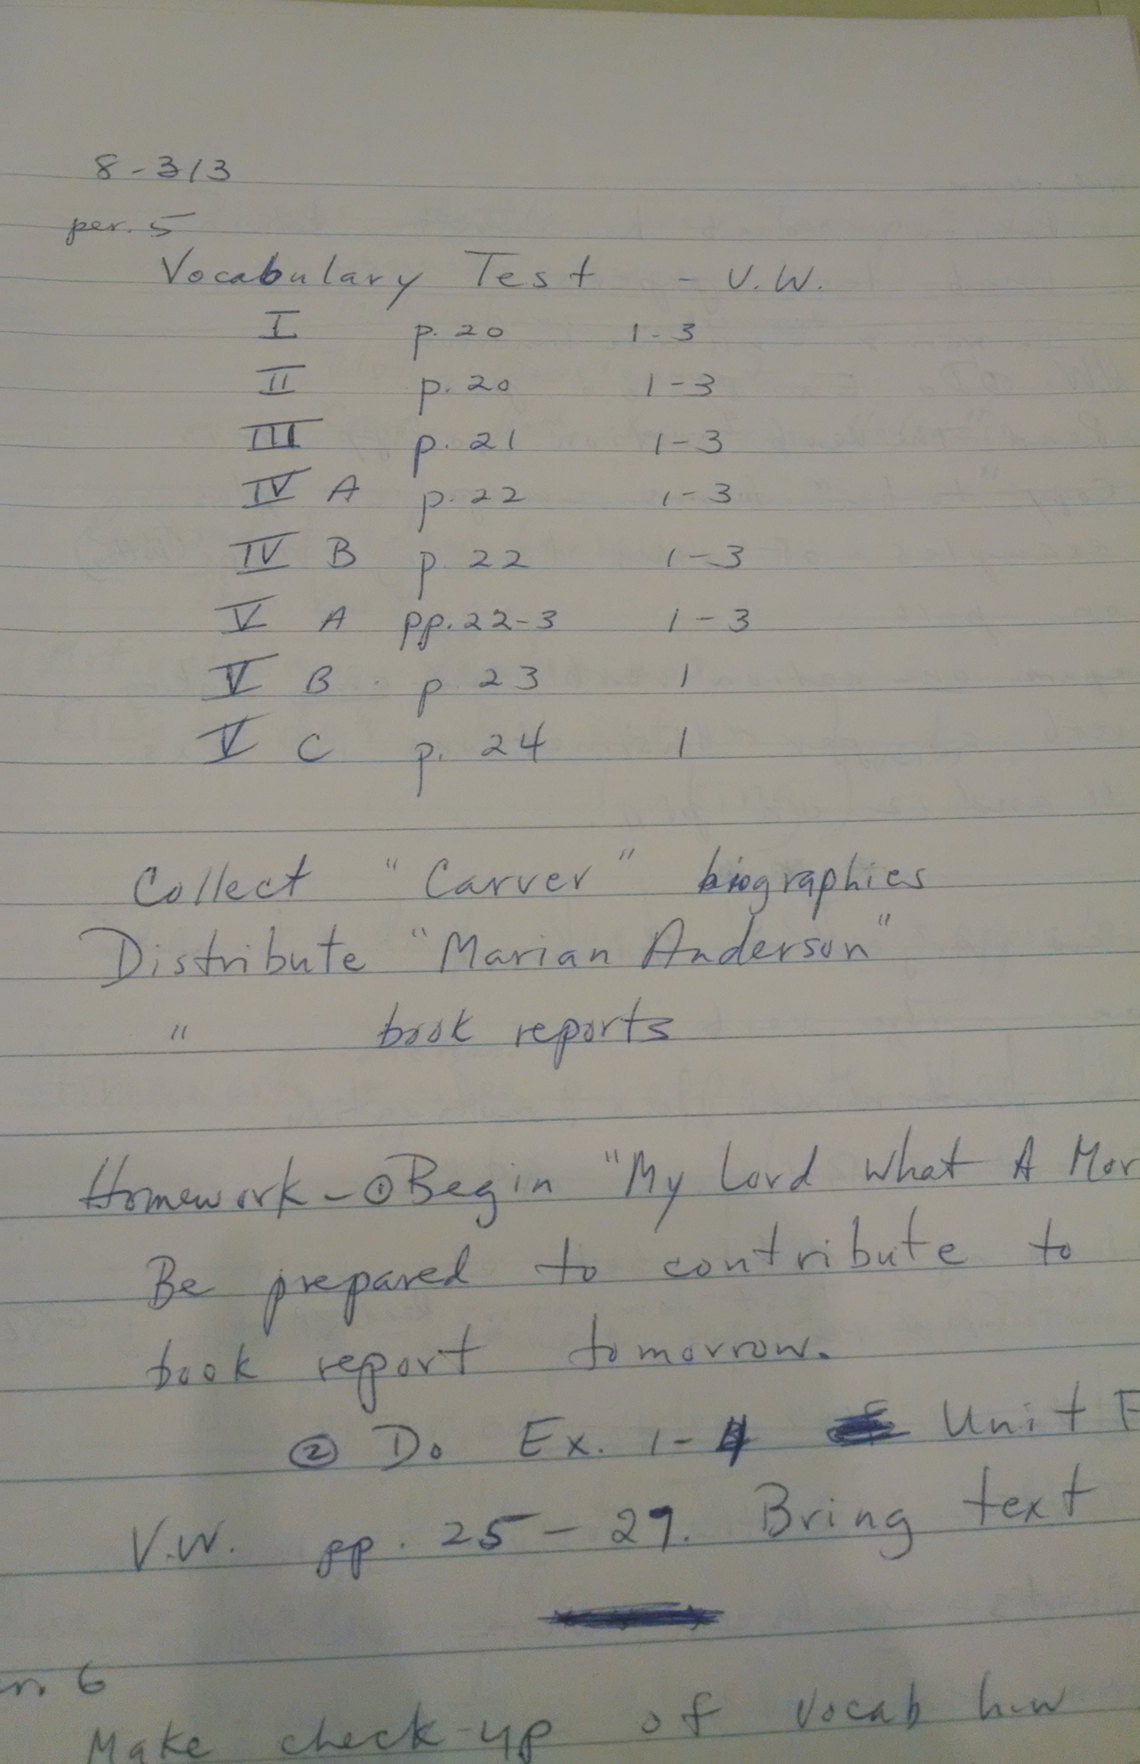 8-313
per. 5
Vocabulary Test - V.W.
I p. 20 1-3
II p. 20 1-3
III p. 21 1-3
IV A p. 22 1-3
IV B p. 22 1-3
V A pp. 22-3 1-3
V B p 23 1
V C p. 24 1
Collect "Carver" biographies
Distribute "Marian Anderson"
" book reports
Homework - ① Begin "My Lord What A Mor
Be prepared to contribute to
book report tomorrow.
② Do Ex. 1-4 Unit
V.W. pp. 25-29. Bring text
6
Make check-up of vocab hw